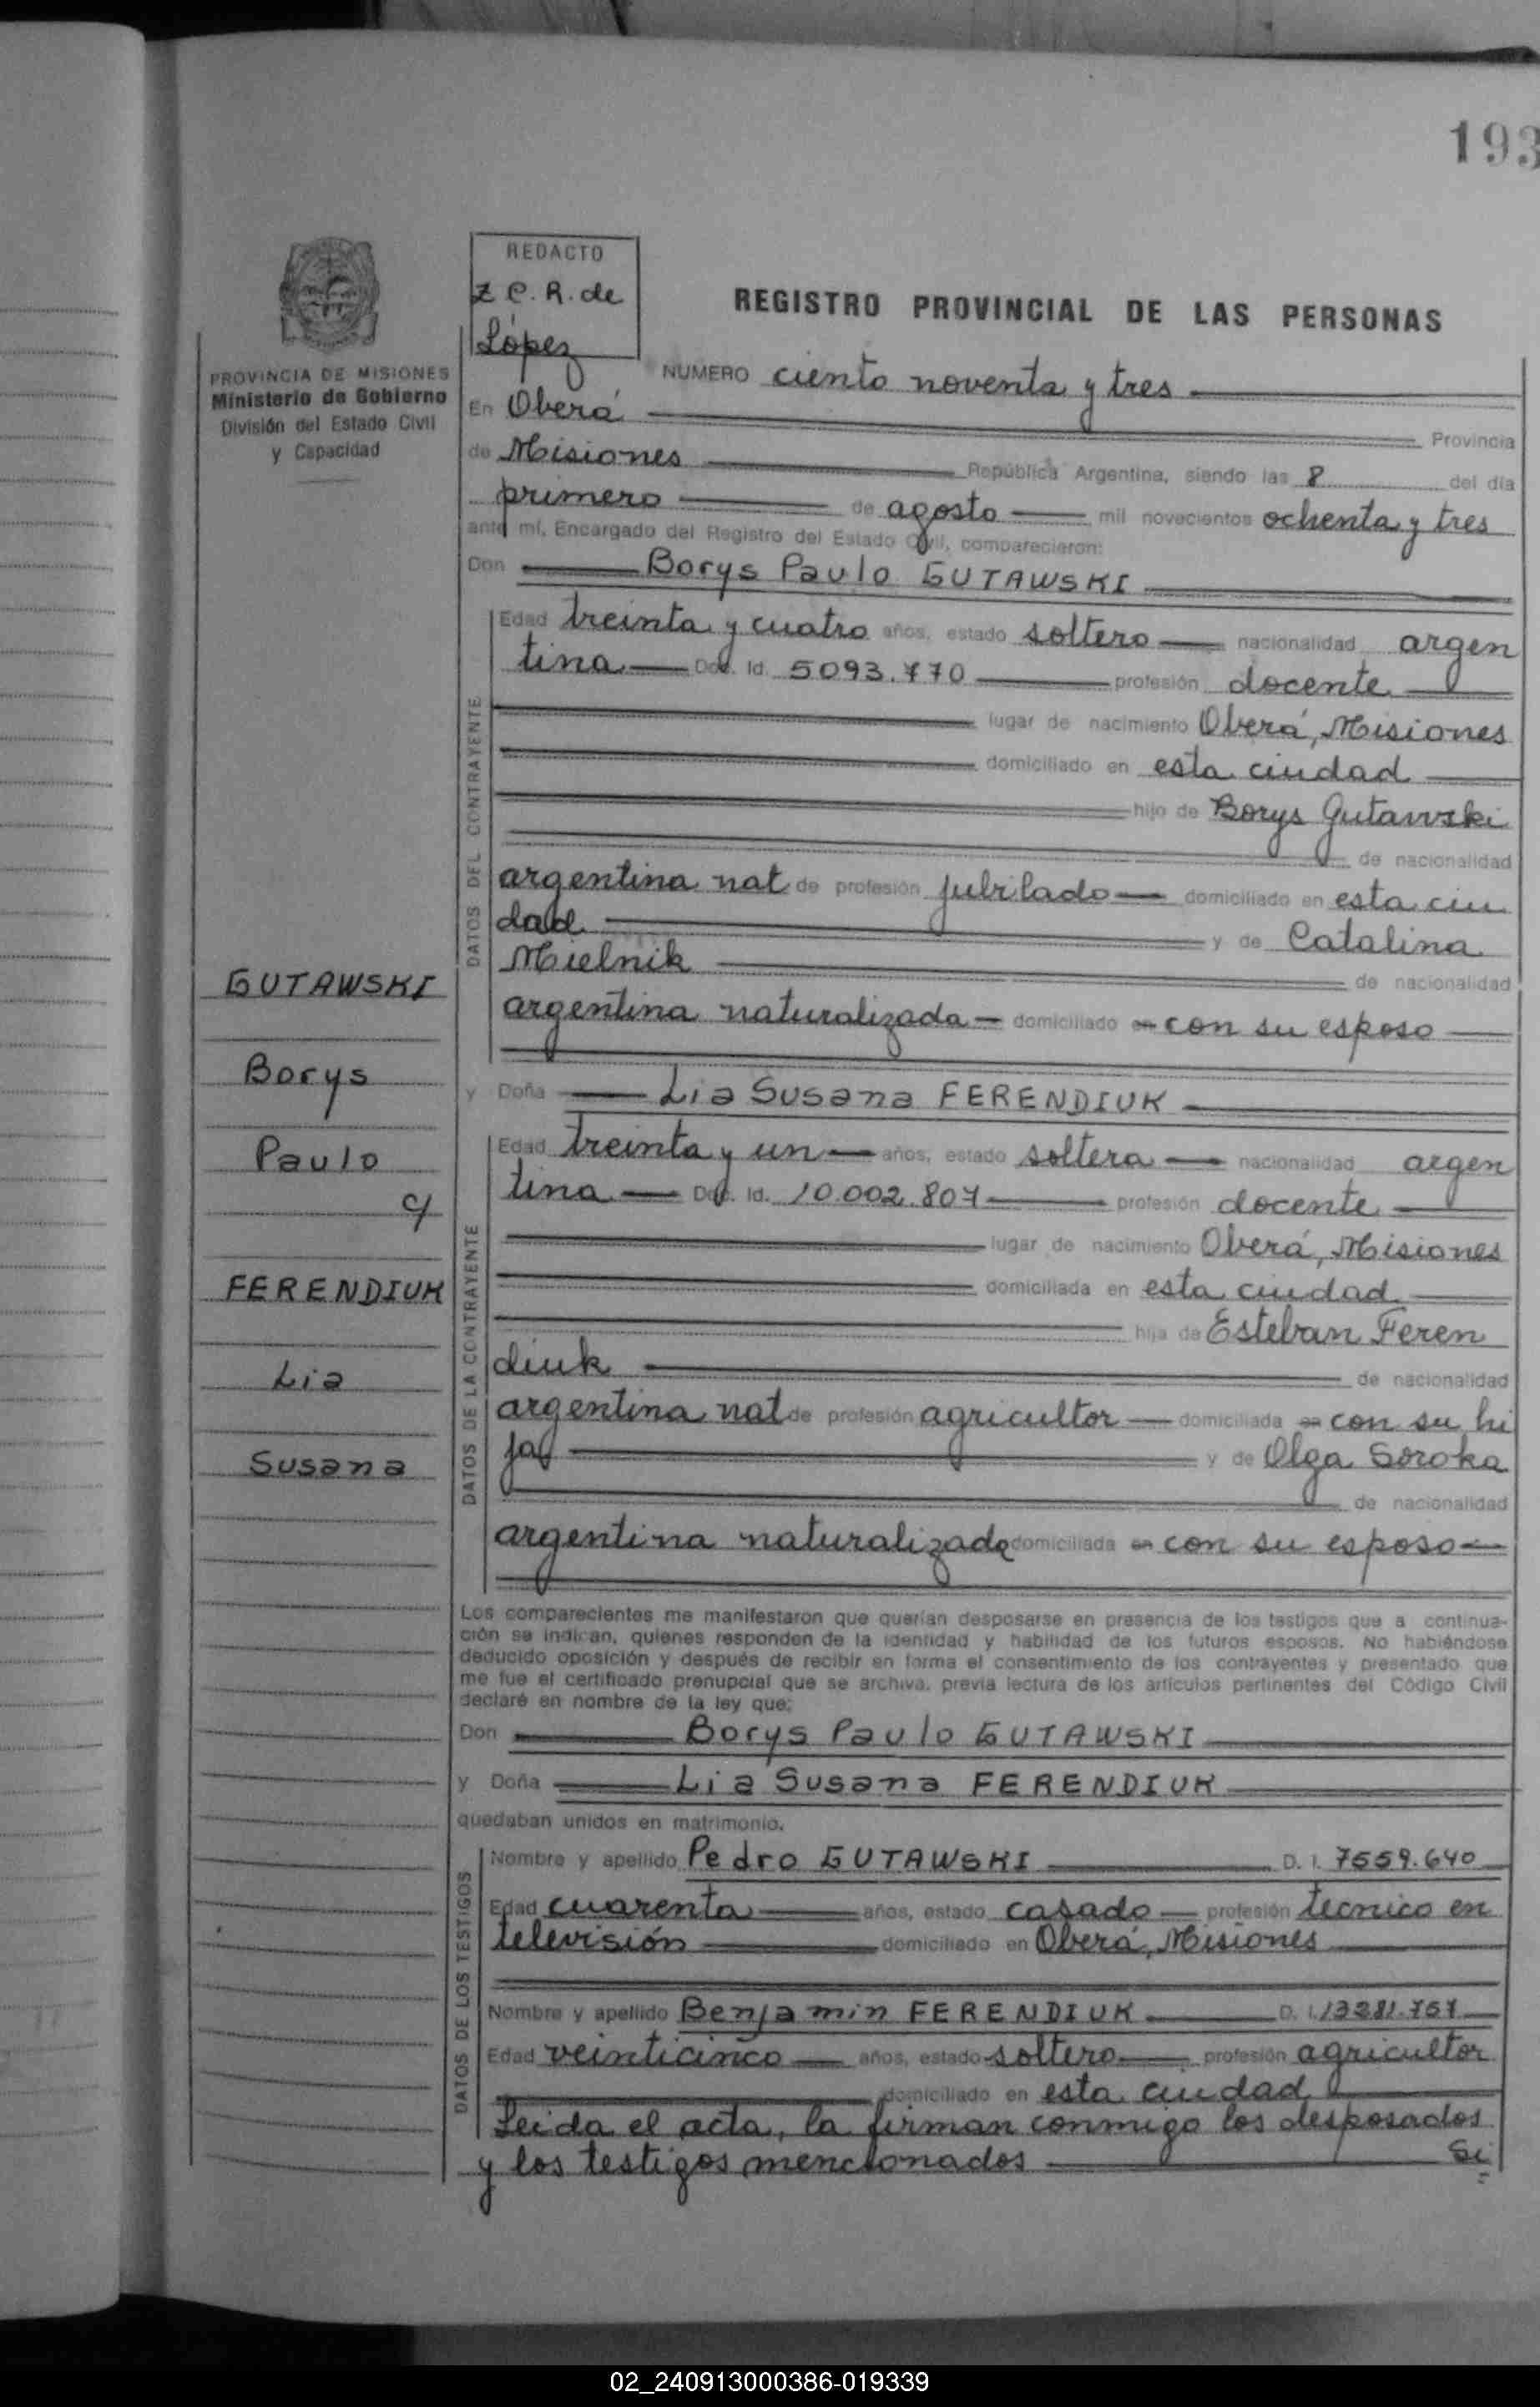 193
REDACTO
Z C. R. de
López
REGISTRO PROVINCIAL DE LAS PERSONAS
PROVINCIA DE MISIONES
Ministerio de Gobierno
División del Estado Civil
y Capacidad
NUMERO ciento noventa y tres
En Oberá Provincia
de Misiones República Argentina, siendo las 8 del día
primero de agosto mil novecientos ochenta y tres
ante mí, Encargado del Registro del Estado Civil, comparecieron:
Don Borys Paulo GUTAWSKI
DATOS DEL CONTRAYENTE
Edad treinta y cuatro años, estado soltero nacionalidad argen
tina Doc. Id. 5093.770 profesión docente
lugar de nacimiento Oberá, Misiones
domiciliado en esta ciudad
hijo de Borys Gutawski
de nacionalidad
argentina nat de profesión jubilado domiciliado en esta ciu
dad y de Catalina
Mielnik de nacionalidad
argentina naturalizada domiciliado en con su esposo
GUTAWSKI
Borys
Paulo
c/
FERENDIUK
Lia
Susana
y Doña Lia Susana FERENDIUK
DATOS DE LA CONTRAYENTE
Edad treinta y un años, estado soltera nacionalidad argen
tina Doc. Id. 10.002.807 profesión docente
lugar de nacimiento Oberá, Misiones
domiciliada en esta ciudad
hija de Esteban Feren
diuk de nacionalidad
argentina nat de profesión agricultor domiciliada en con su hi
ja y de Olga Soroka
de nacionalidad
argentina naturalizada domiciliada en con su esposo
Los comparecientes me manifestaron que querían desposarse en presencia de los testigos que a continua-
ción se indican, quienes responden de la identidad y habilidad de los futuros esposos. No habiéndose
deducido oposición y después de recibir en forma el consentimiento de los contrayentes y presentado que
me fue el certificado prenupcial que se archiva, previa lectura de los artículos pertinentes del Código Civil
declaré en nombre de la ley que:
Don Borys Paulo GUTAWSKI
y Doña Lia Susana FERENDIUK
quedaban unidos en matrimonio.
DATOS DE LOS TESTIGOS
Nombre y apellido Pedro GUTAWSKI D. I. 7559.640
Edad cuarenta años, estado casado profesión tecnico en
televisión domiciliado en Oberá, Misiones
Nombre y apellido Benjamin FERENDIUK D. I. 13281.757
Edad veinticinco años, estado soltero profesión agricultor
domiciliado en esta ciudad
Leida el acta, la firman conmigo los desposados
y los testigos mencionados Si
02_240913000386-019339